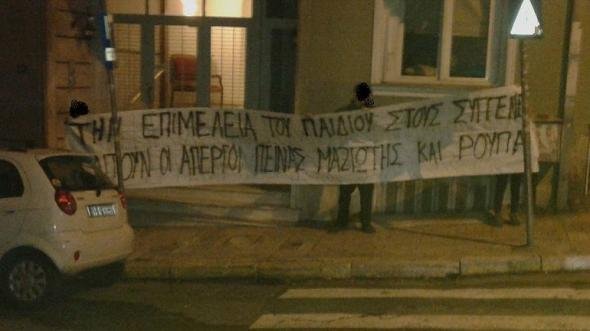 ΤΗΝ ΕΠΙΜΕΛΕΙΑ ΤΟΥ ΠΑΙΔΙΟΥ ΣΤΟΥΣ ΣΥΓΓΕΝΕ
ΟΙ ΑΠΕΡΓΟΙ ΠΕΙΝΑΣ ΜΑΖΙΩΤΗΣ ΚΑΙ ΡΟΥΠΑ